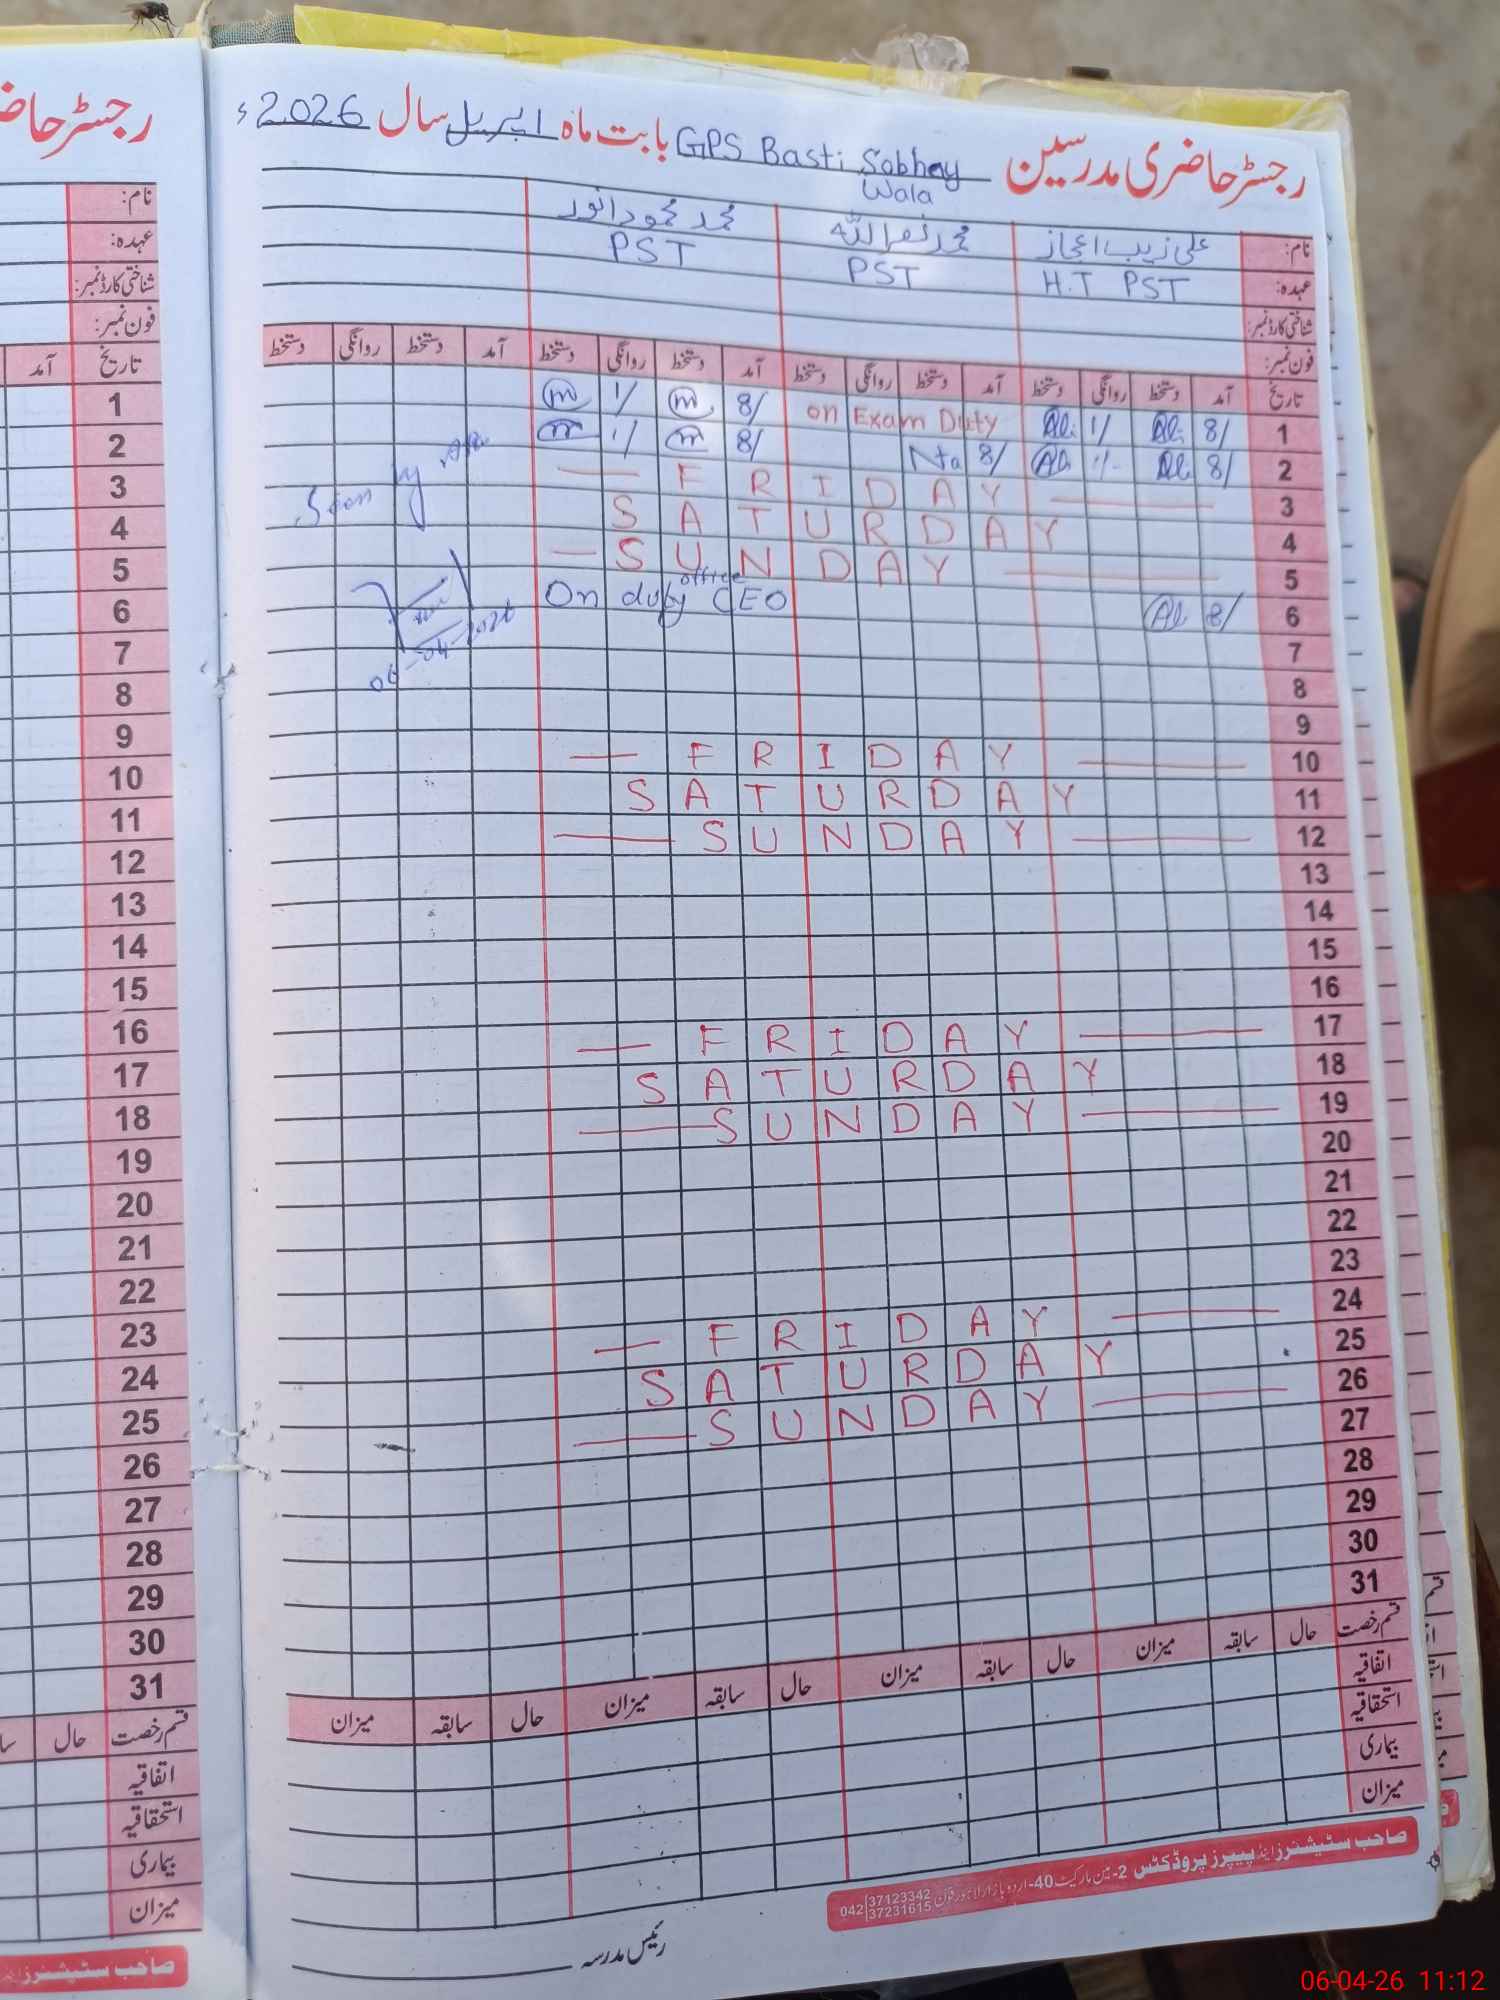 رجسٹر حاضری مدرسین GPS Basti Sobhay Wala بابت ماہ اپریل سال 2026ء
نام: علی زیب اعجاز محمد نصر اللہ محمد محمود انور
عہدہ: H.T PST PST PST
شناختی کارڈ نمبر:
فون نمبر:
تاریخ آمد دستخط روانگی دستخط آمد دستخط روانگی دستخط آمد دستخط روانگی دستخط آمد دستخط روانگی دستخط
1 8/ Ali 1/ Ali on Exam Duty 8/ m 1/ m
2 8/ Ali 1/- Ali 8/ Na 8/ m 1/ m
3 — FRIDAY —
4 SATURDAY
5 — SUNDAY —
Seen by
6 8/ Ali On duty CEO office
06-04-2026
7
8
9
10 — FRIDAY —
11 SATURDAY
12 — SUNDAY —
13
14
15
16
17 — FRIDAY —
18 SATURDAY
19 — SUNDAY —
20
21
22
23
24 — FRIDAY —
25 SATURDAY
26 — SUNDAY —
27
28
29
30
31
قسم رخصت حال سابقہ میزان حال سابقہ میزان حال سابقہ میزان حال سابقہ میزان
اتفاقیہ
استحقاقیہ
بیماری
میزان
صاحب سٹیشنرز اینڈ پیپرز پروڈکٹس 2-مین مارکیٹ 40-اردو بازار لاہور فون 042 37123342 37231615
رئیس مدرسہ
رجسٹر حا
نام:
عہدہ:
شناختی کارڈ نمبر:
فون نمبر:
تاریخ آمد
1
2
3
4
5
6
7
8
9
10
11
12
13
14
15
16
17
18
19
20
21
22
23
24
25
26
27
28
29
30
31
قسم رخصت حال سا
اتفاقیہ
استحقاقیہ
بیماری
میزان
صاحب سٹیشنرز
06-04-26 11:12